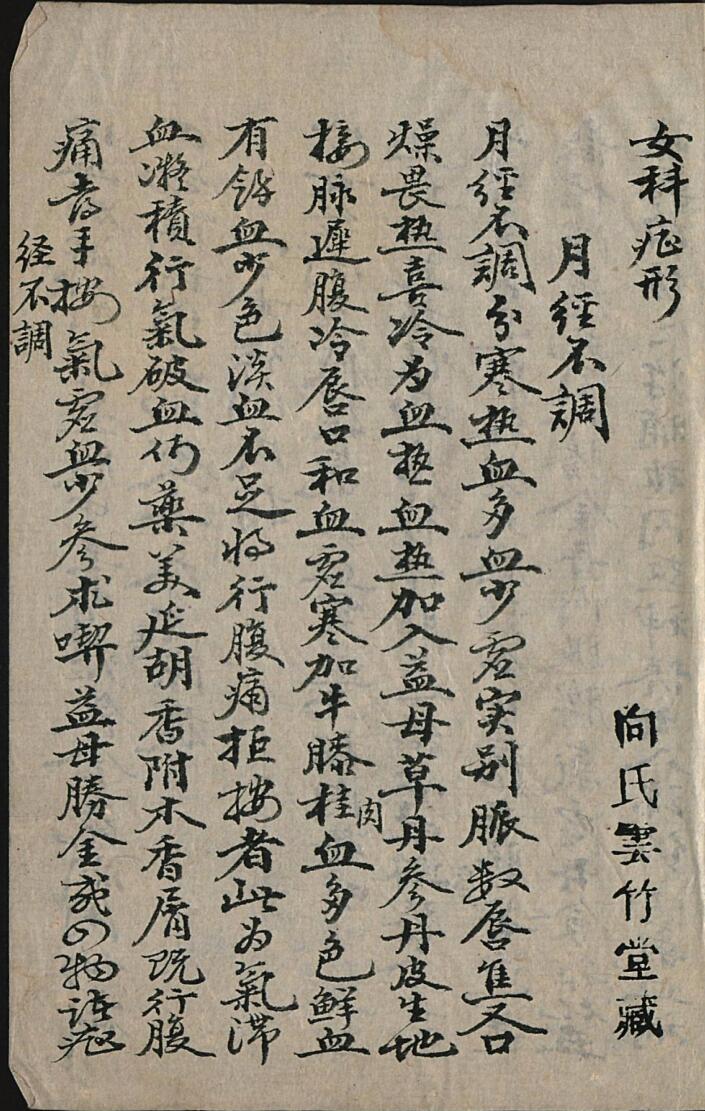 女科症形
向氏雲竹堂藏
月經不調
月經不調分寒热血多血少虚实别脈数唇焦又口
燥畏热喜冷为血热血热加入益母草丹参丹皮生地
按脉遲腹冷唇口和血虚寒加牛膝桂肉血多色鮮血
有餘血少色淡血不足将行腹痛拒按者此为氣滞
血凝積行氣破血付藥美延胡香附木香屑既行腹
痛者手按氣虚血少参朮喫益母勝金或四物諸症
経不調